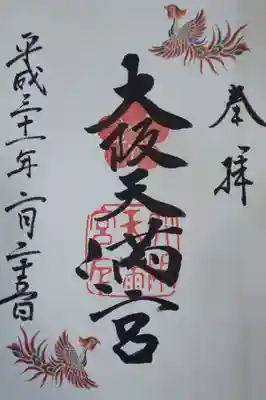 奉拝
大阪天満宮
平成三十一年二月二十日